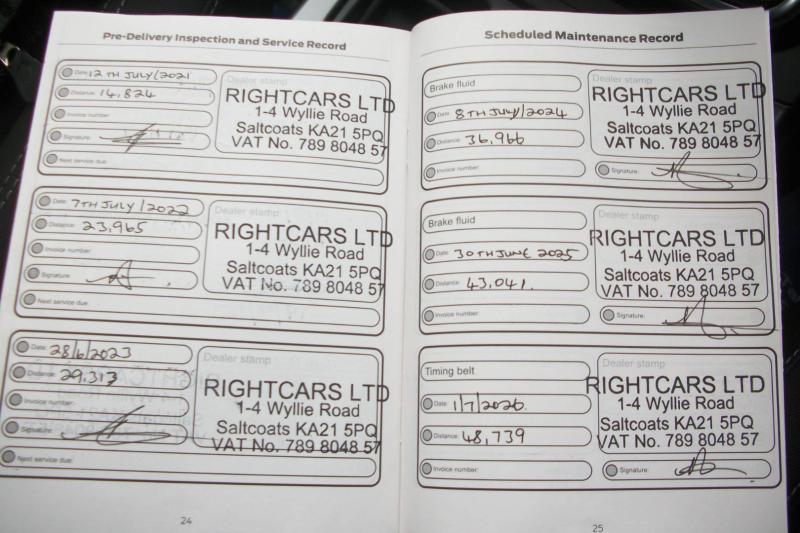 Pre-Delivery Inspection and Service Record
Date: 12TH JULY/2021
Distance: 14,824
Invoice number:
Signature:
Next service due:
Dealer stamp
RIGHTCARS LTD
1-4 Wyllie Road
Saltcoats KA21 5PQ
VAT No. 789 8048 57
Date: 7TH JULY/2022
Distance: 23,965
Invoice number:
Signature:
Next service due:
Dealer stamp
RIGHTCARS LTD
1-4 Wyllie Road
Saltcoats KA21 5PQ
VAT No. 789 8048 57
Date: 28/6/2023
Distance: 29,317
Invoice number:
Signature:
Next service due:
Dealer stamp
RIGHTCARS LTD
1-4 Wyllie Road
Saltcoats KA21 5PQ
VAT No. 789 8048 57
24
Scheduled Maintenance Record
Brake fluid
Date: 8TH JULY/2024
Distance: 36,966
Invoice number:
Dealer stamp
RIGHTCARS LTD
1-4 Wyllie Road
Saltcoats KA21 5PQ
VAT No. 789 8048 57
Signature:
Brake fluid
Date: 30TH JUNE 2025
Distance: 43,041.
Invoice number:
Dealer stamp
RIGHTCARS LTD
1-4 Wyllie Road
Saltcoats KA21 5PQ
VAT No. 789 8048 57
Signature:
Timing belt
Date: 1/7/2026.
Distance: 48,739
Invoice number:
Dealer stamp
RIGHTCARS LTD
1-4 Wyllie Road
Saltcoats KA21 5PQ
VAT No. 789 8048 57
Signature:
25